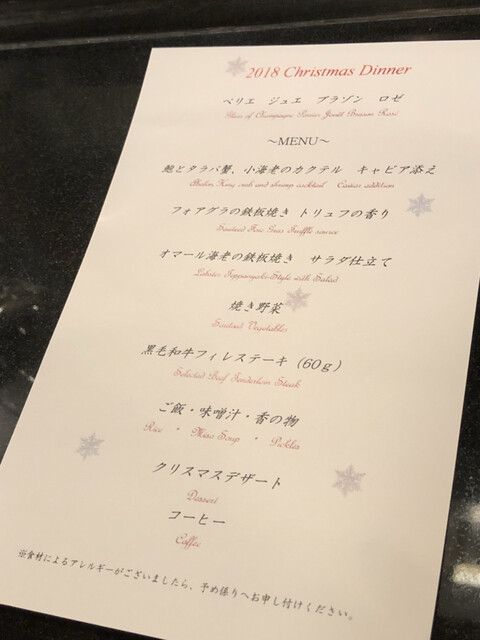 2018 Christmas Dinner
ペリエ　ジュエ　ブラゾン　ロゼ
Glass of Champagne Perrier Jouët Blason Rosé
～MENU～
鮑とタラバ蟹、小海老のカクテル　キャビア添え
Abalon, King crab and shrimp cocktail Caviar addition
フォアグラの鉄板焼き トリュフの香り
Sauteed Foie Gras Truffle sauce
オマール海老の鉄板焼き　サラダ仕立て
Lobster Teppanyaki-Style with Salad
焼き野菜
Sauteed Vegetables
黒毛和牛フィレステーキ（60ｇ）
Selected Beef Tenderloin Steak
ご飯・味噌汁・香の物
Rice ・ Miso Soup ・ Pickles
クリスマスデザート
Dessert
コーヒー
Coffee
※食材によるアレルギーがございましたら、予め係りへお申し付けください。